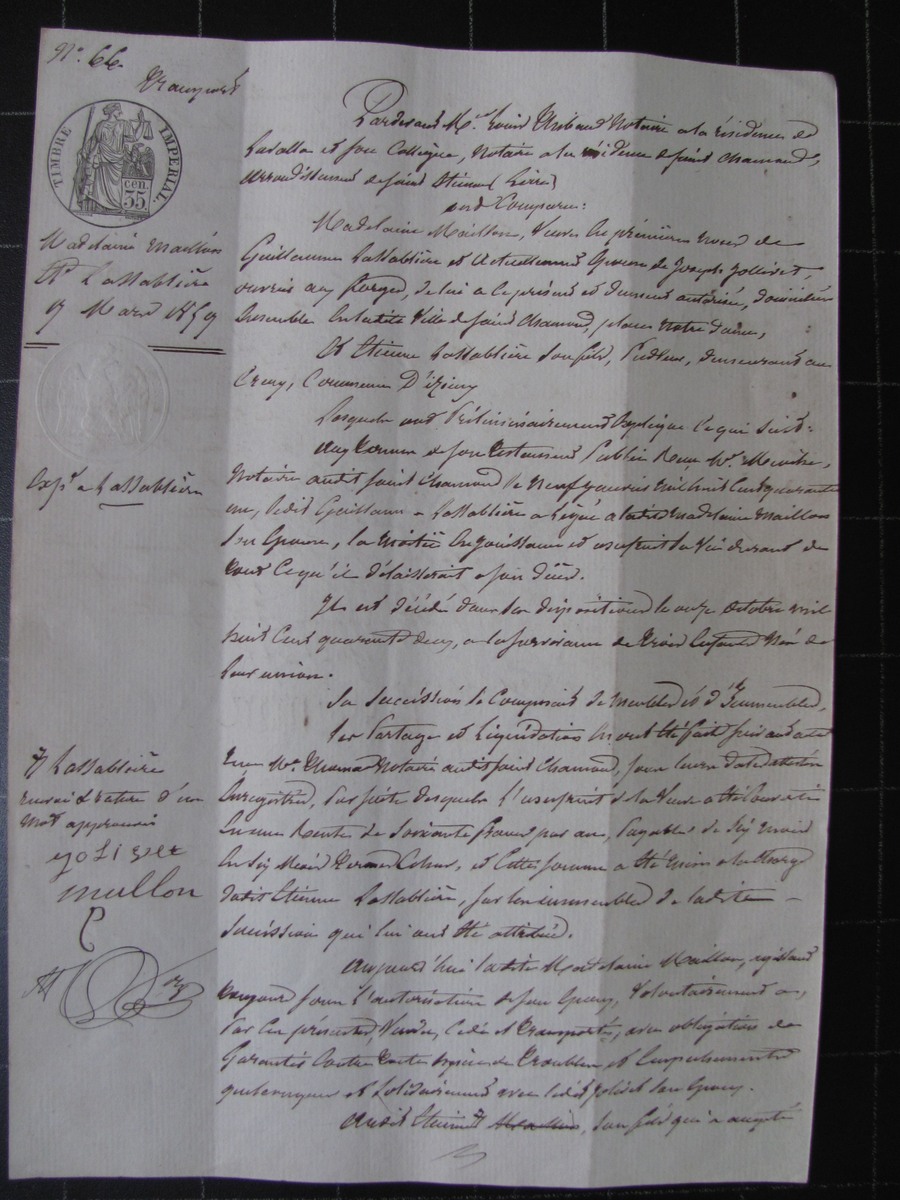 N°. 66
Transport
TIMBRE IMPERIAL
cen.
35
Madelaine Maillon
Vve Lassablière
9 Mars 1859
Expn a Lassablière
Pardevant Me. Louis Notaire a la résidence de
Lavalla et son Collègue, Notaire a la résidence de Saint Chamond,
arrondissement de Saint Etienne (Loire)
ont Comparu:
Madelaine Maillon, Veuve en premières noces de
Guillaume Lassablière et actuellement épouse de Joseph Jollivet,
ouvrier aux forges, de lui a ce présent et dument autorisée, domiciliés
ensemble en ladite Ville de Saint Chamond, place Notre Dame,
Et Etienne Lassablière son fils, demeurant au
Creux, Commune D'Izieux
Lesquels ont Préliminairement Expliqué ce qui suit:
aux termes de son testament Public Reçu Me.
Notaire audit Saint Chamond le neuf janvier mil huit cent quarante
un, ledit Guillaume Lassablière a légué a ladite Madelaine Maillon
son épouse, la moitié en jouissance et usufruit sa vie durant de
tout ce qu'il délaisserait a son décès.
Il est décédé dans ces dispositions le onze octobre mil
huit cent quarante deux, a la survivance de trois enfants nés de
leur union.
Sa succession se Composait de meubles et d'Immeubles,
les Partage et Liquidation en ont été fait suivant acte
reçu Me Notaire audit Saint Chamond, sous leurs dates
Enregistrés, Par suite desquels l'usufruit de la Veuve a été Converti
en une Rente de Soixante francs par an, payables de six mois
en six mois termes échus, et cette somme a été mise a la charge
dudit Etienne Lassablière, sur les immeubles de ladite
succession qui lui ont été attribués.
Aujourd'hui ladite Madelaine Maillon, agissant
toujours sous l'autorisation de son époux, Volontairement a,
Par ces présentes, Vendu, Cédé et transporté, avec obligation de
Garantir Contre toute espèce de troubles et empêchements
quelconques et solidairement avec ledit Jolivet son époux.
Audit Etienne Maillon, son fils qui a accepté
Lassablière
renvoi & rature d'un
Mot approuvés
jolivet
mallon